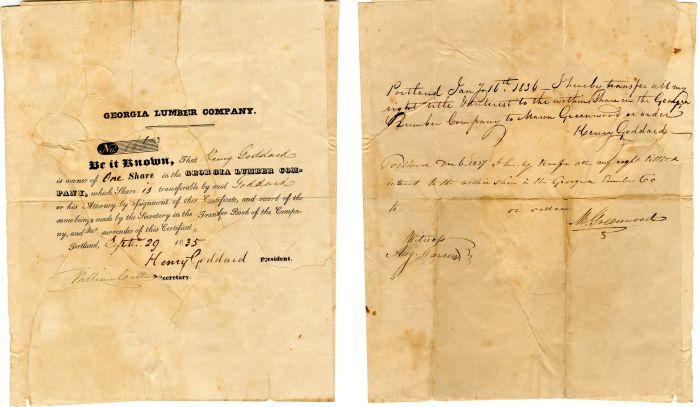 GEORGIA LUMBER COMPANY.
No.
Be it Known, That Henry Goddard
is owner of One Share in the GEORGIA LUMBER COM-
PANY, which Share is transferable by said Goddard
or his Attorney by assignment of this Certificate, and record of the
same being made by the Secretary in the Transfer Book of the Compa-
ny, and the surrender of this Certificate.
Portland, Sept. 29 1835
Henry Goddard President.
William Secretary.
Portland Jany 16th. 1836 — I hereby transfer all my
right title & interest to the within Share in the Georgia
Lumber Company to Mason Greenwood or order
Henry Goddard —
Portland Dec 6. 1837 I hereby transfer all my right title &
interest to the within Share in the Georgia Lumber Co
to or order
M. Greenwood
Witness
Aug.